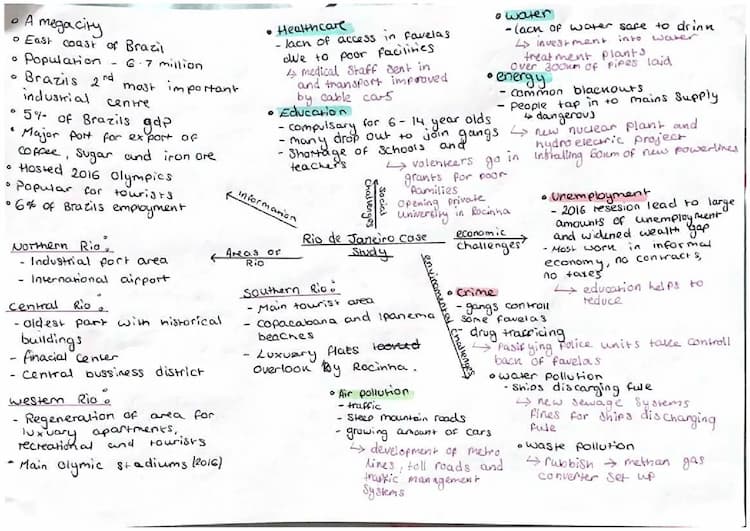 • A megacity
• East coast of Brazil
• Population - 6.7 million
• Brazils 2nd most important
industrial centre
• 5% of Brazils gdp
• Major port for export of
coffee, sugar and iron ore
• Hosted 2016 Olympics
• Popular for tourists
• 6% of Brazils employment
Information
• Healthcare
- lack of access in favelas
due to poor facilities
↳ medical staff sent in
and transport improved
by cable cars
• Education
- compulsary for 6-14 year olds
- many drop out to join gangs
- Shortage of schools and
teachers
↳ volenteers go in
grants for poor
families
opening private
university in Rocinha
Social
Challenges
• water
- lack of water safe to drink
↳ investment into water
treatment plants
over 300km of pipes laid
• energy
- common blackouts
- people tap in to mains supply
↳ dangerous
↳ new nuclear plant and
hydroelectric project
installing 60km of new powerlines
Rio de Janeiro case
study
economic
challenges
• Unemployment
- 2016 resesion lead to large
amounts of unemployment
and widened wealth gap
- Most work in informal
economy, no contracts,
no taxes
↳ education helps to
reduce
• Crime
- gangs controll
some favelas
- drug trafficing
↳ Pasifying police units take controll
back of favelas
Areas of
Rio
Northern Rio:
- Industrial port area
- International airport
Central Rio:
- oldest part with historical
buildings
- finacial center
- Central bussiness district
Western Rio:
- Regeneration of area for
luxuary apartments,
recreational and tourists
- Main Olymic stadiums (2016)
Southern Rio:
- Main tourist area
- Copacabana and Ipanema
beaches
- Luxuary flats
overlook by Rocinha.
enviromental challenges
• Air pollution
- traffic
- steep mountain roads
- growing amount of cars
↳ development of metro
lines, toll roads and
traffic management
systems
• water pollution
- Ships discarging fule
↳ new sewage systems
fines for ships discharging
fule
• waste pollution
↳ rubbish → methan gas
converter set up